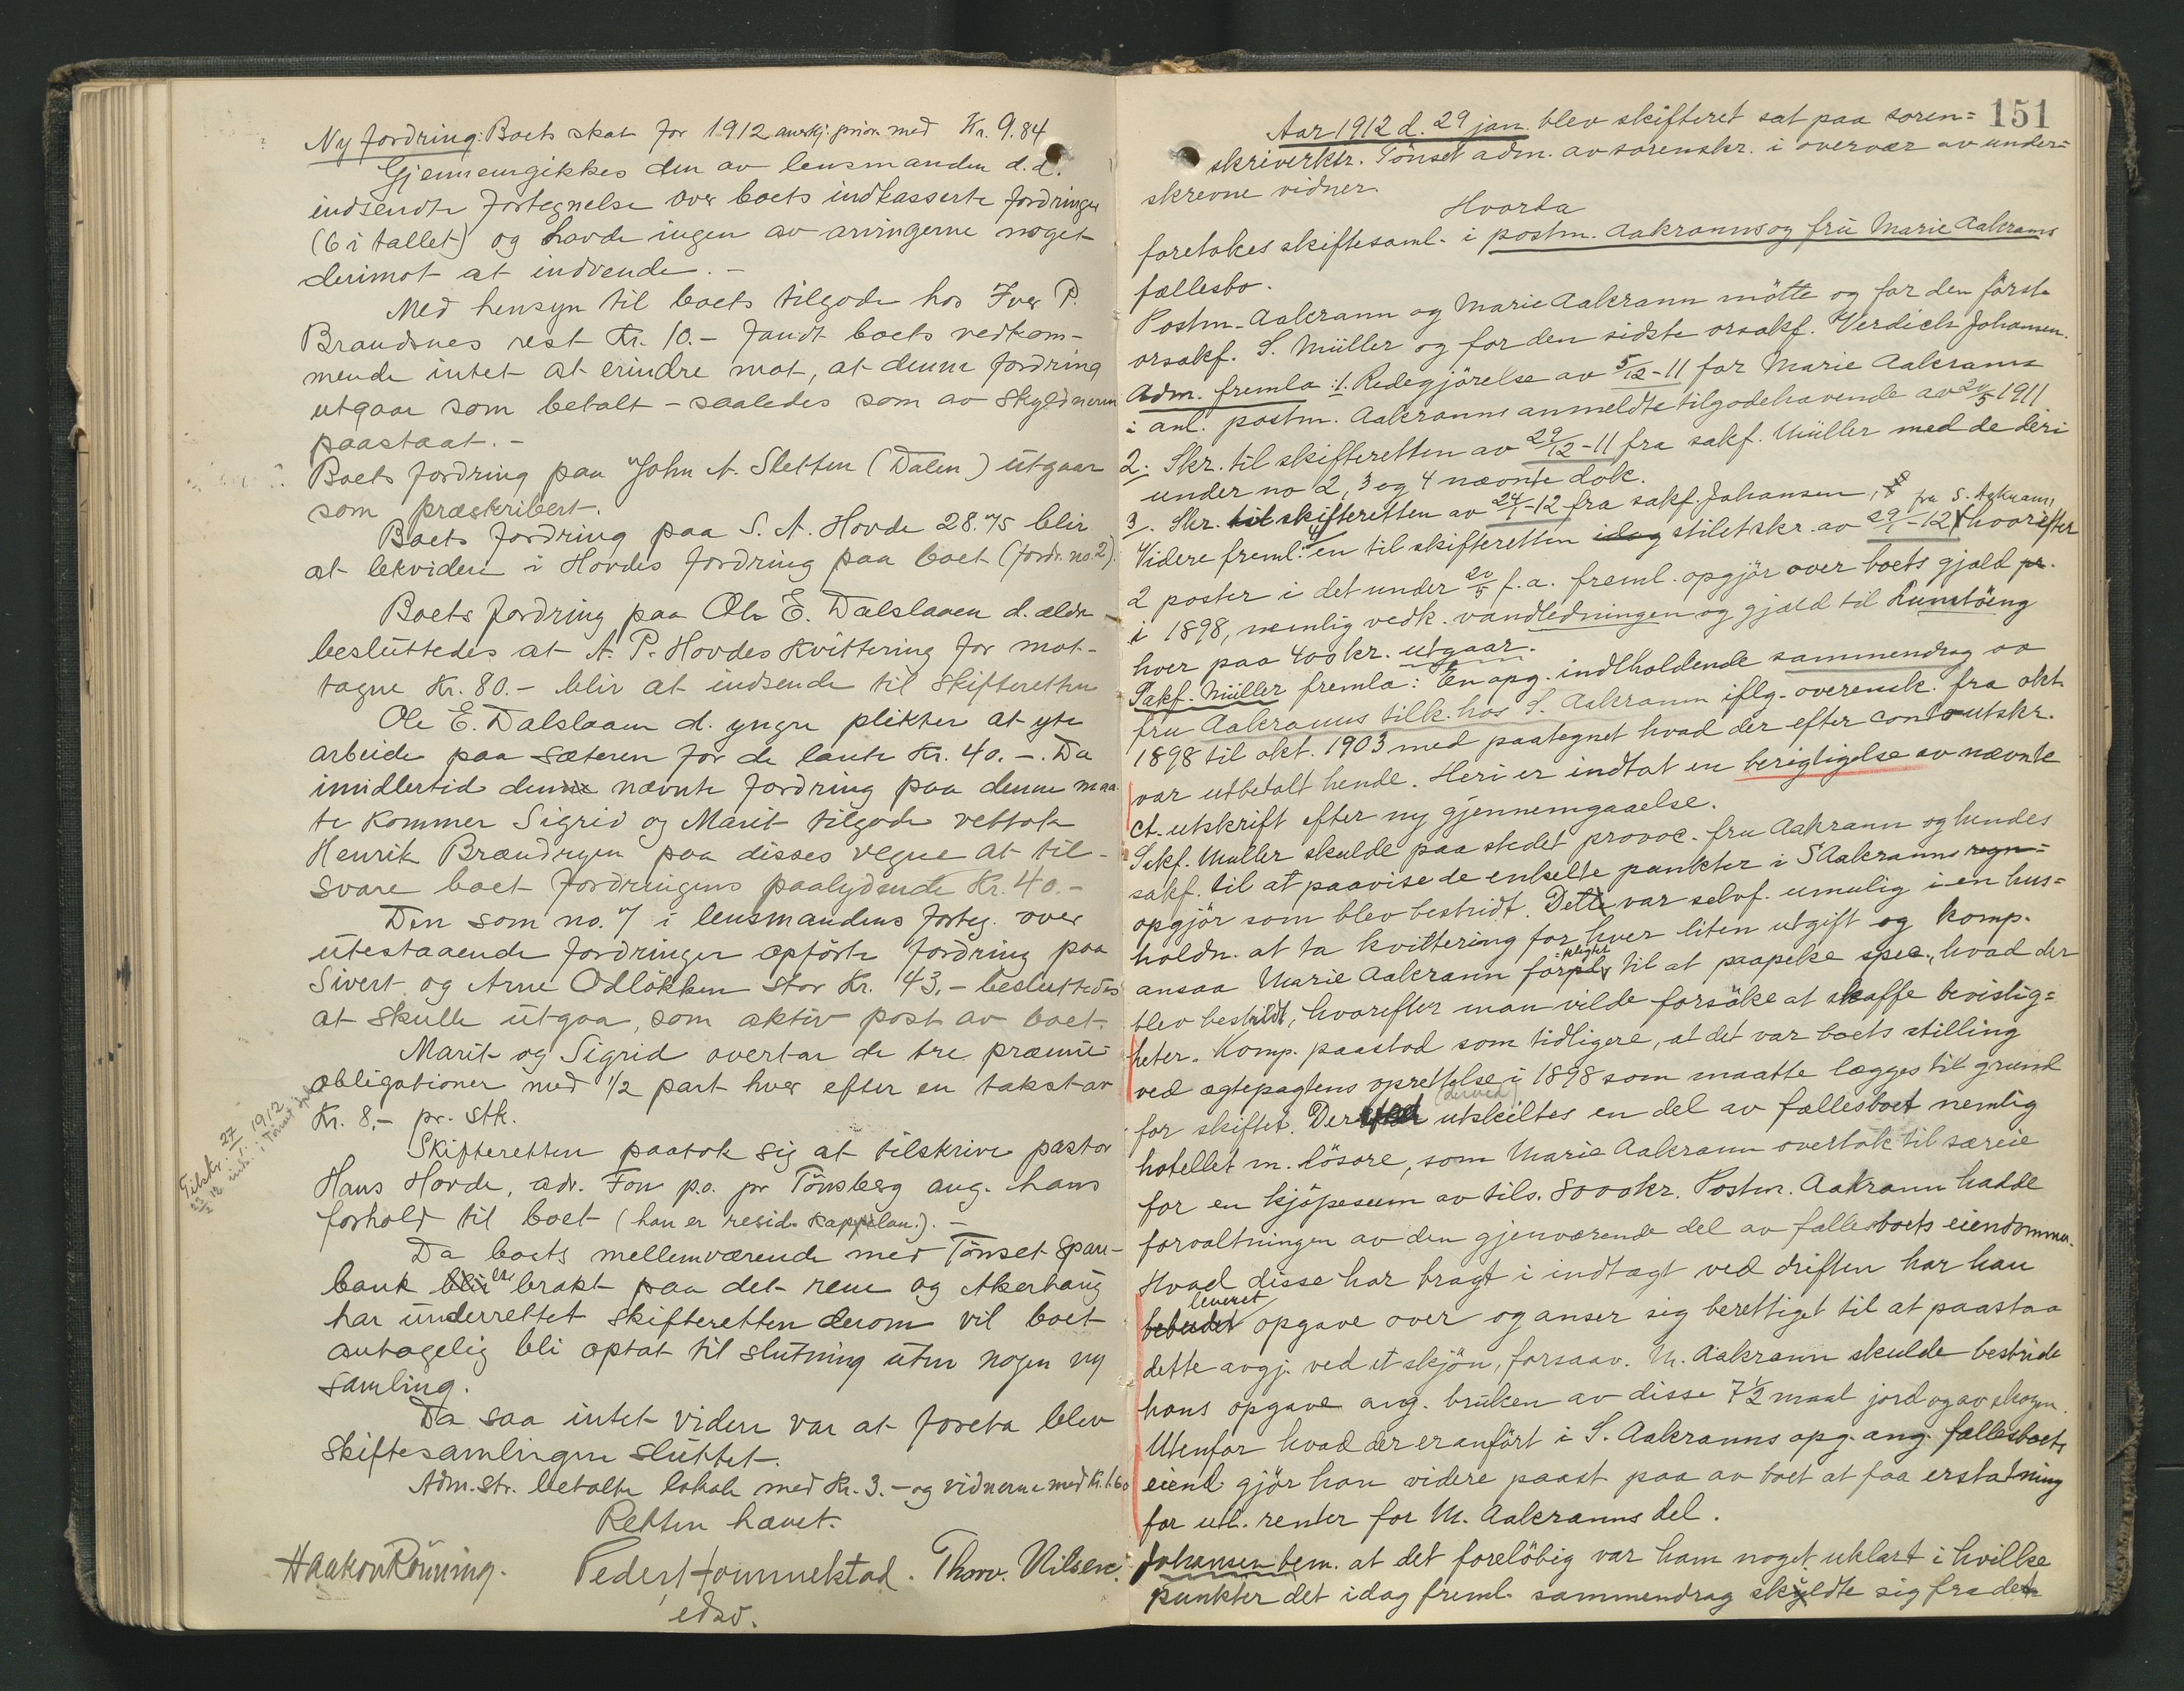 Ny fordring: Boets skat for 1912 anerkj. prior. med Kr. 9.84
Gjennemgikkes den av lensmanden d.d.
indsendte fortegnelse over boets indkasserte fordringer
(6 i tallet) og havde ingen av arvingerne noget
derimot at indvende. -
Med hensyn til boets tilgode hos Iver P.
Brandsnes rest Kr. 10.- fandt boets vedkom-
mende intet at erindre mot, at denne fordring
utgaar som betalt - saaledes som av skyldneren
paastaat. -
Boets fordring paa John A. Sletten (Dalen) utgaar
som præskribert.
Boets fordring paa S. A. Hovde 28.75 blir
at lekvidere i Hovdes fordring paa boet (fordr. no. 2).
Boets fordring paa Ole E. Dalslaaen d. ældre -
besluttedes at A. P. Hovdes kvittering for mot-
tagne Kr. 80.- blir at indsende til skifteretten
Ole E. Dalslaaen d. yngre plikter at yte
arbeide paa sæteren for de laante Kr. 40.-. Da
imidlertid den nævnte fordring paa denne maa-
te kommer Sigrid og Marit tilgode vettok
Henrik Brændryen paa disses vegne at til-
svare boet fordringens paalydende Kr. 40.-
Den som no. 7 i lensmandens forteg. over
utestaaende fordringer opførte fordring paa
Sivert og Arne Odlökken stor Kr. 43.- besluttedes
at skulle utgaa, som aktiv post av boet.
Marit og Sigrid overtar de tre præmie-
obligationer med 1/2 part hver efter en takst av
Kr. 8,- pr. stk.
Tilskr. 27/1 1912
Skifteretten paatok sig at tilskrive pastor
Hans Hovde, adr. Fon p.o. pr Tönsberg ang. hans
forhold til boet (han er resid. kappelan.). -
Da boets mellemværende med Tönset Spare-
bank blir er brakt paa det rene og Akerhaug
har underrettet skifteretten derom vil boet
antagelig bli optat til slutning uten nogen ny
samling.
Da saa intet videre var at foreta blev
skiftesamlingen sluttet.
Adm. str. betalte lokale med Kr. 3.- og vidnerne med Kr. 1.60
Retten hævet.
Haakon Rönning. Peder Hommelstad. Thorv. Nilsen.
edsv.
151
Aar 1912 d. 29 jan. blev skifteret sat paa soren=
skriverktr. Tönset adm. av sorenskr. i overvær av under=
skrevne vidner.
Hvorda
foretokes skiftesaml. i postm. Aakranns og fru Marie Aakranns
fællesbo.
Postm. Aakrann og Marie Aakrann mötte og for den förste
orsakf. S. Müller og for den sidste orsakf. Verdich Johansen.
Adm. fremla: 1. Redegjörelse av 5/12-11 for Marie Aakrann
i anl. postm. Aakranns anmeldte tilgodehavende av 20/5 1911
2. Skr. til skifteretten av 29/12-11 fra sakf. Müller med de deri
under no 2, 3 og 4 nævnte dok.
3. Skr. til skifteretten av 24/1-12 fra sakf. Johansen,
fra S. Aakrann,
Videre freml. en til skifteretten idag stilet skr. av 29/1-12 hvorefter
2 poster i det under 20/5 f.a. freml. opgjör over boets gjæld pr.
i 1898, nemlig vedk. vandledningen og gjæld til Kunstöeng
hver paa 400 kr. utgaar.
Sakf. Müller fremla: En opg. indtholdende sammendrag av
fru Aakranns tilk. hos S. Aakrann iflg. overensk. fra okt.
1898 til okt. 1903 med paategnet hvad der efter contoutskr.
var utbetalt hende. Heri er indtat en berigtigelse av nævnte
ct. utskrift efter ny gjennemgaaelse.
Sakf. Müller skulde paa stedet provoc. fru Aakrann og hendes
sakf. til at paavise de enkelte punkter i S. Aakranns regn=
opgjör som blev bestridt. Dette var selvf. umulig i en hus=
holdn. at ta kvittering for hver liten utgift og komp.
pligtet
ansaa Marie Aakrann forpl. til at paapeke spec., hvad der
blev bestridt, hvorefter man vilde forsöke at skaffe bevislig=
heter. Komp. paastod som tidligere, at det var boets stilling
ved ægtepagtens oprettelse i 1898 som maatte lægges til grund
(derved)
for skiftet. Der utskiltes en del av fællesboet nemlig
hotellet m. lösöre, som Marie Aakrann overtok til særeie
for en kjöpesum av tils. 8000 kr. Postm. Aakrann hadde
forvaltningen av den gjenværende del av fællesboets eiendommer.
Hvad disse har bragt i indtægt ved driften har han
leveret
bebudet opgave over og anser sig berettiget til at paastaa
dette avgj. ved et skjön, forsaav. M. Aakrann skulde bestride
hans opgave ang. bruken av disse 7 1/2 maal jord og av skogen.
Utenfor hvad der er anfört i S. Aakranns opg. ang. fællesboets
eiend. gjör han videre paast. paa av boet at faa erstatning
for utl. renter for M. Aakranns del.
Johansen bem. at det foreløbig var ham noget uklart i hvilke
punkter det idag freml. sammendrag skyldte sig fra det